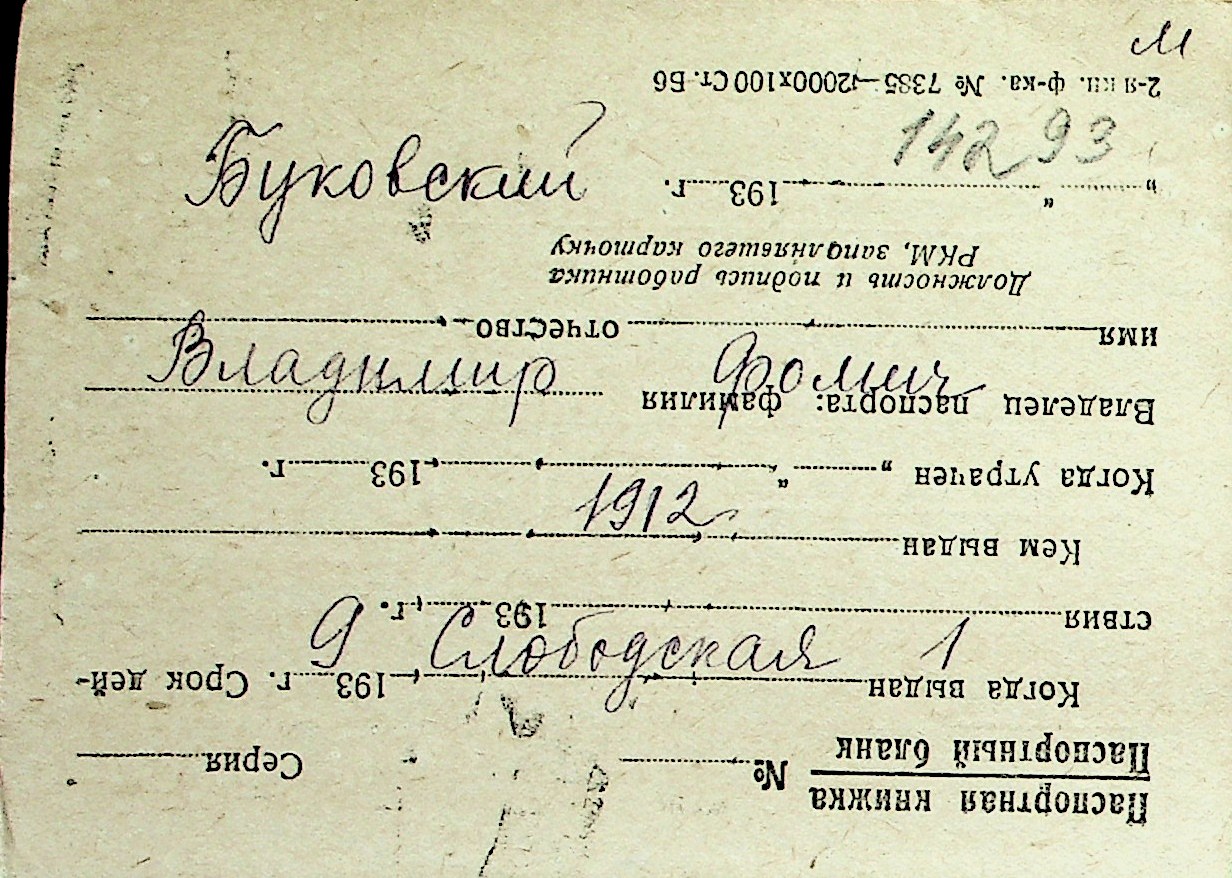 м
2-я кн. ф-ка. № 7385—2000х100 Ст. Б6
14293
„ “ 193 г.
Буковский
РКМ, заполнявшего карточку
Должность и подпись работника
имя отчество
Владимир Фомич
Владелец паспорта: фамилия
Когда утрачен „ “ 193 г.
1912
Кем выдан
ствия 193 г.
9 Слободская 1
Когда выдан 193 г. Срок дей-
Паспортный бланк
№ Серия
Паспортная книжка